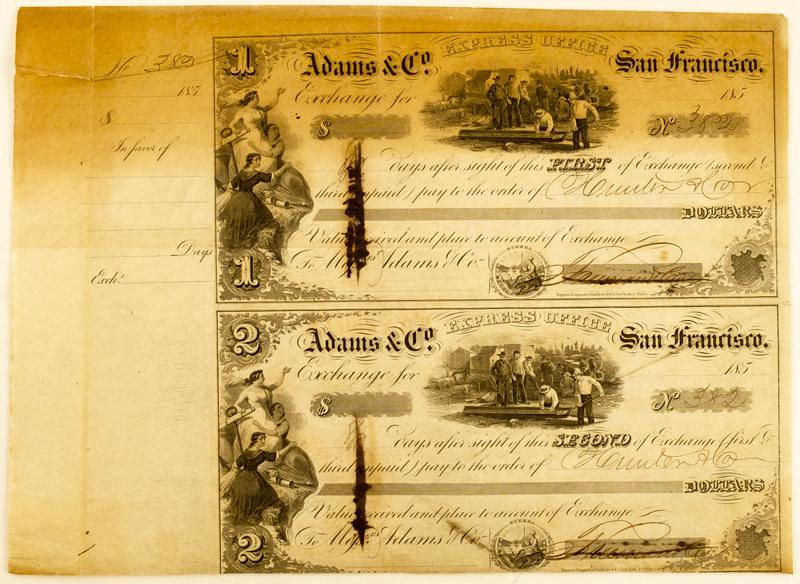 No 382
185
$
In favor of
Days
Exch:
1
Adams & Co.
EXPRESS OFFICE
San Francisco.
Exchange for
185
$
No 382
Days after sight of this FIRST of Exchange (second &
third unpaid) pay to the order of
DOLLARS
Value received and place to account of Exchange
To Adams & Co.
EUREKA
1
2
Adams & Co.
EXPRESS OFFICE
San Francisco.
Exchange for
185
$
No 382
Days after sight of this SECOND of Exchange (first &
third unpaid) pay to the order of
DOLLARS
Value received and place to account of Exchange
To Adams & Co.
EUREKA
2